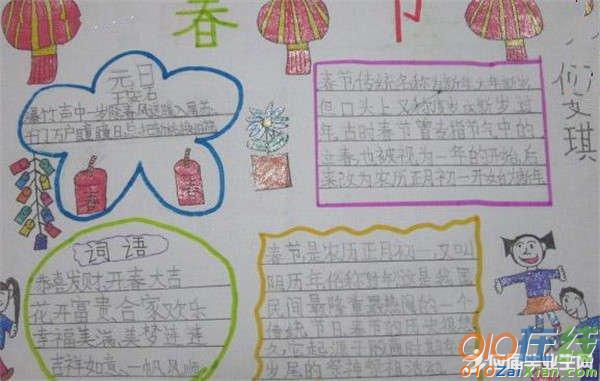 春节
元日
王安石
爆竹声中一岁除春风送暖入屠苏
千门万户曈曈日总把新桃换旧符
春节传统名称为新年大年新岁
但口头上又称度岁庆新岁过
年古时春节曾专指节气中的
立春也被视为一年的开始,后
来改为农历正月初一开始为新年
艾琪
词语
恭喜发财,开春大吉
花开富贵合家欢乐
幸福美满,美梦连连
吉祥如意、一帆风顺
春节是农历正月初一,又叫
阴历年俗称过年这是我国
民间最隆重最热闹的一个
传统节日春节的历史很
910在线
910ZaiXian.com
应届毕业生网